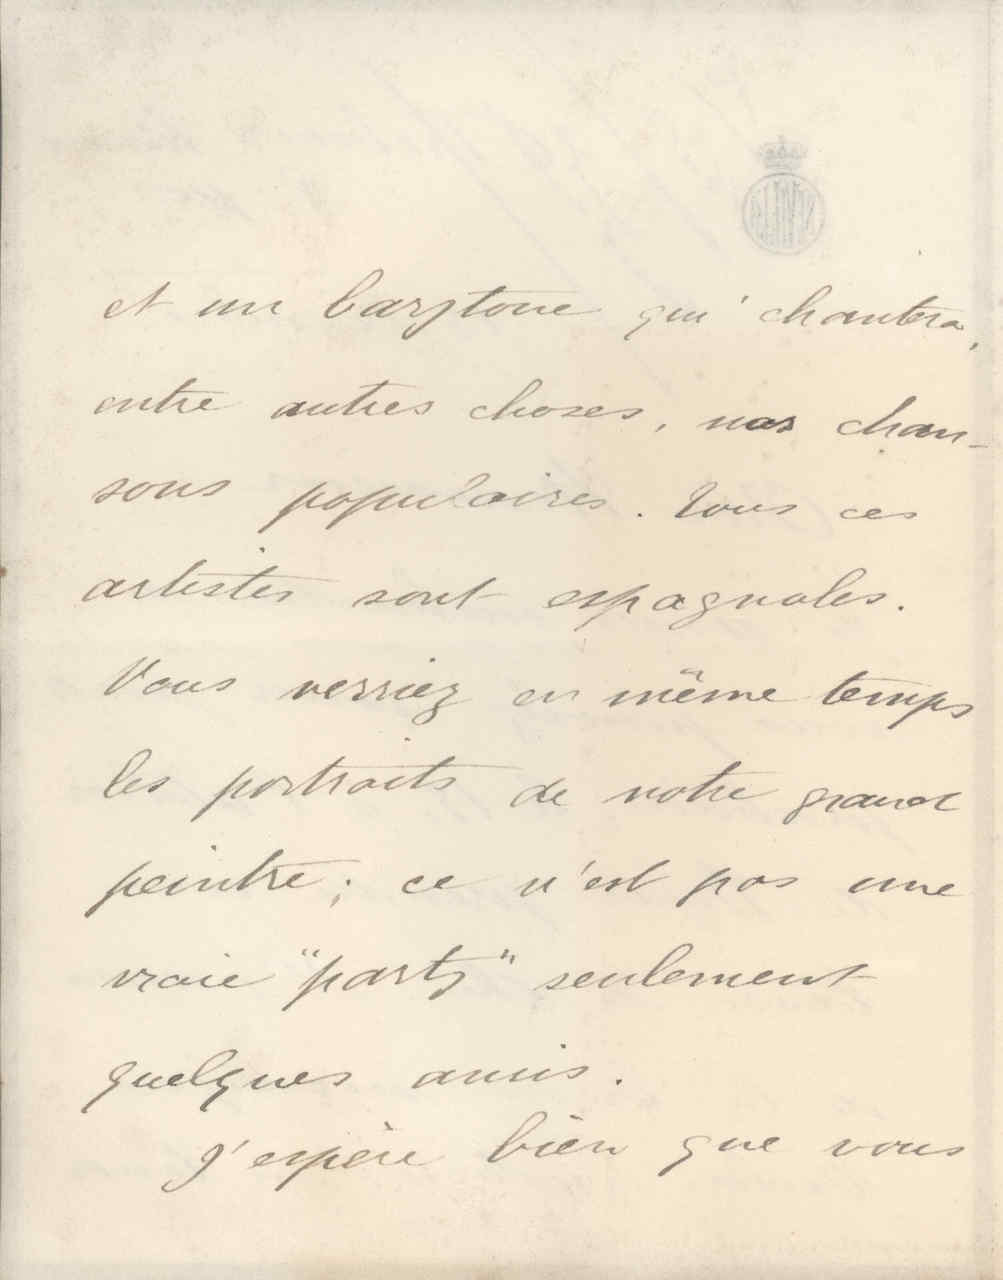 et un barytone qui chantera,
entre autres choses, nos chan-
sons populaires. Tous ces
artistes sont espagnoles.
Vous verriez en même temps
les portraits de notre grand
peintre; ce n'est pas une
vraie "party" seulement
quelques amis.
J'espère bien que vous